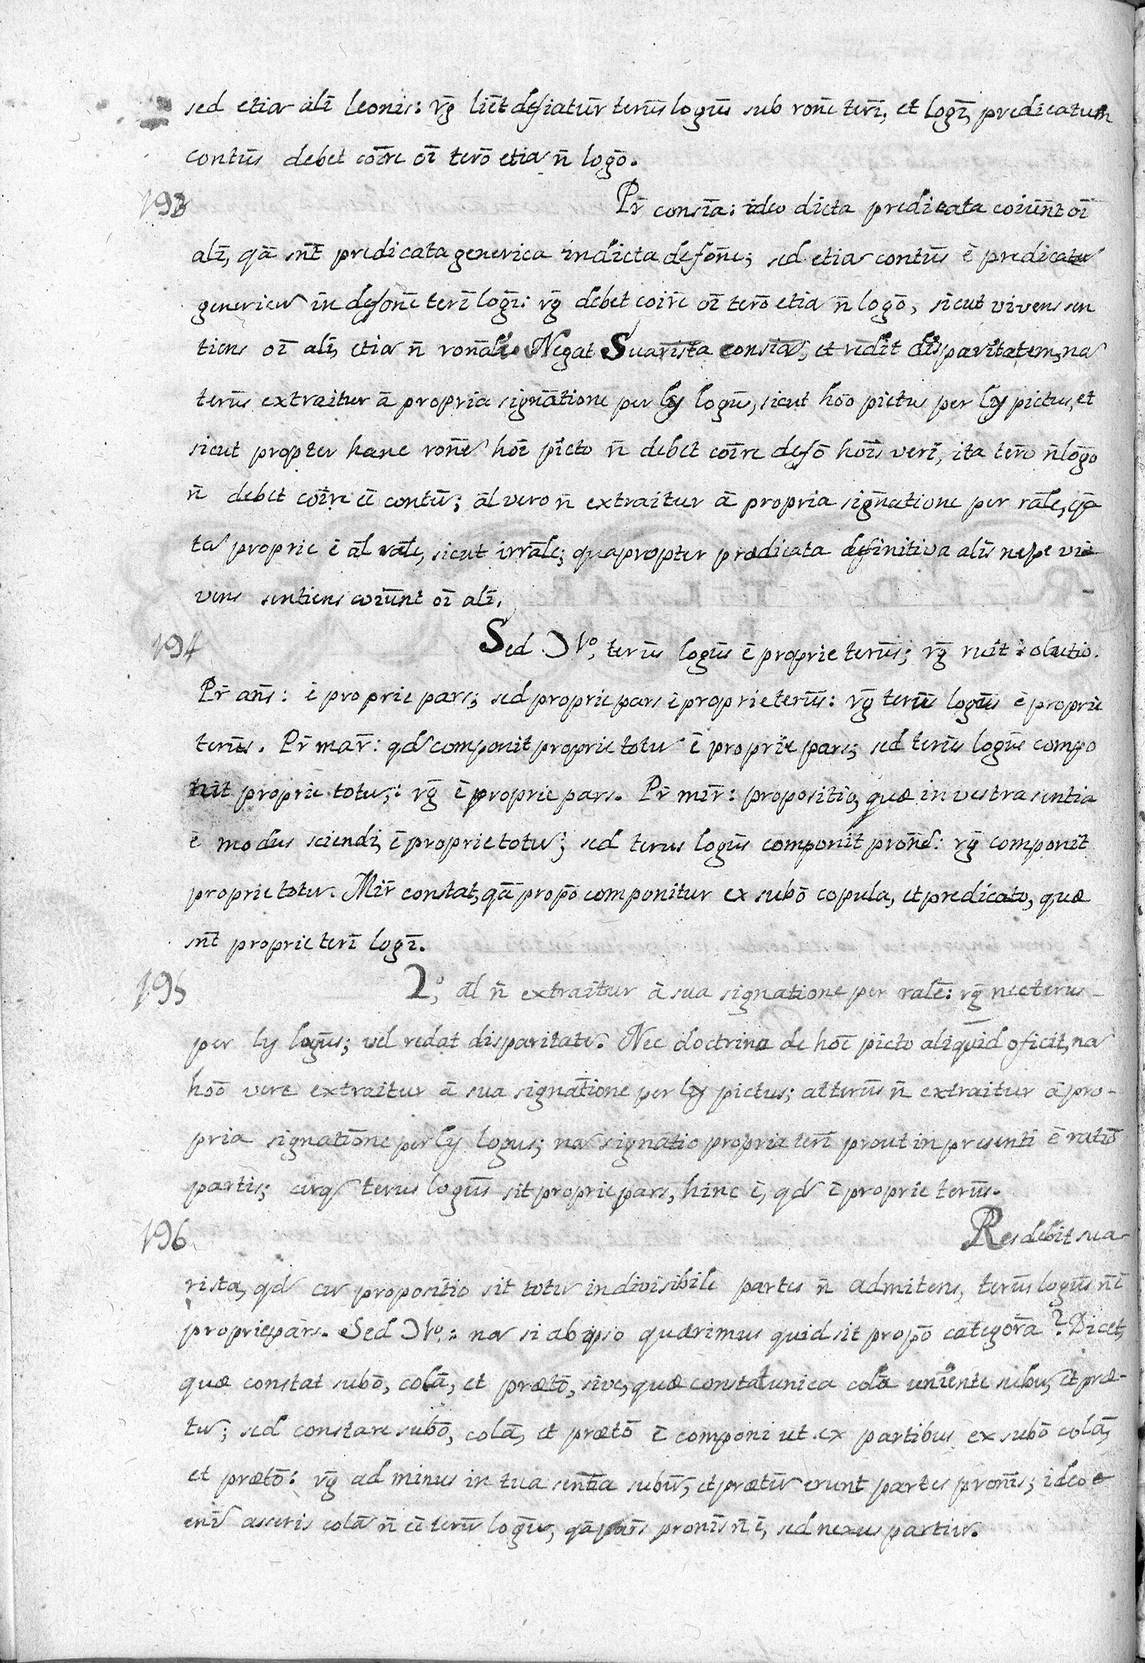 sed etiā alī leonis: rḡ licēt defiatūr terūs logūs sub ronē terī, et logī, predicatum
contūs debet coīre oī terō etiā n̄ logō.
193 Pr̄ consīa: ideo dicta predicata coiūnt oī
alī, qā sn̄t predicata generica in dicta defōne; sed etiā contūs ē predicatū
genericū in defōne terī logī: rḡ debet coīre oī terō etiā n̄ logō, sicut vivens sen
tiens oī alī, etiā n̄ ronālī. Negat Suarista consīā, et rēdit disparitatem, nā
terūs extraitur ā propria signātione per ly logūs, sicut hoō pictus per ly pictus, et
sicut propter hanc ronē hoī picto n̄ debet coīre defō hoīs verī, ita terō n̄ logō
n̄ debet coīre eē contūs; āl vero n̄ extraitur ā propria signatione per rāle, qā
tā proprie ē āl rāle, sicut irrāle; quapropter predicata definitiva alīs nepe viv
vens sentiens coiūnt oī alī.
194 Sed Ↄ Vº, terūs logūs ē proprie terūs; rḡ ruit solutio.
Pr̄ ans̄: ē proprie pars; sed proprie pars ē proprie terūs: rḡ terūs logūs ē proprie
terūs. Pr̄ mar̄: qd componit proprie totū ē proprie pars; sed terūs logūs compo
nit proprie totū: rḡ ē proprie pars. Pr̄ mir̄: propositio, quæ in vestra sentīa
ē modus sciendi, ē proprie totū; sed terūs logūs componit pronē: rḡ componit
proprie totū. Mir̄ constat, qā propō componitur ex subō copula, et predicato, quæ
sn̄t proprie terī logī.
195 2º, āl n̄ extraitur ā sua signatione per rale: rḡ nec terūs
per ly logūs; vel redat disparitatē. Nec doctrina de hoī picto aliquid oficit, nā
hoō vere extraitur ā sua signatione per ly pictus; at terūs n̄ extraitur ā pro-
pria signatione per ly logus; nā signātio propria terī prout in presenti ē ratiō
partis; cūq terūs logūs sit proprie pars, hinc ē, qd ē proprie terūs.
196 Resdebit sua
rista, qd cū propositio sit totū indivisibile partes n̄ admitens, terūs logūs n̄ ē
proprie pars. Sed Ↄ Vº: nā si ab ipso quærimus quid sit propō categorā? Dicet,
quæ constat subō, colā, et prætō, sive, quæ constat unica colā uniente subū, et præ-
tū; sed constare subō, colā, et prætō ē componi ut ex partibus ex subō colā,
et prætō: rḡ ad minus in tua sentīa subū, et prætū erunt partes pronīs; ideo
enī aseris colā n̄ eē terū logūs, qā pars pronīs n̄ ē, sed nexus partiū.